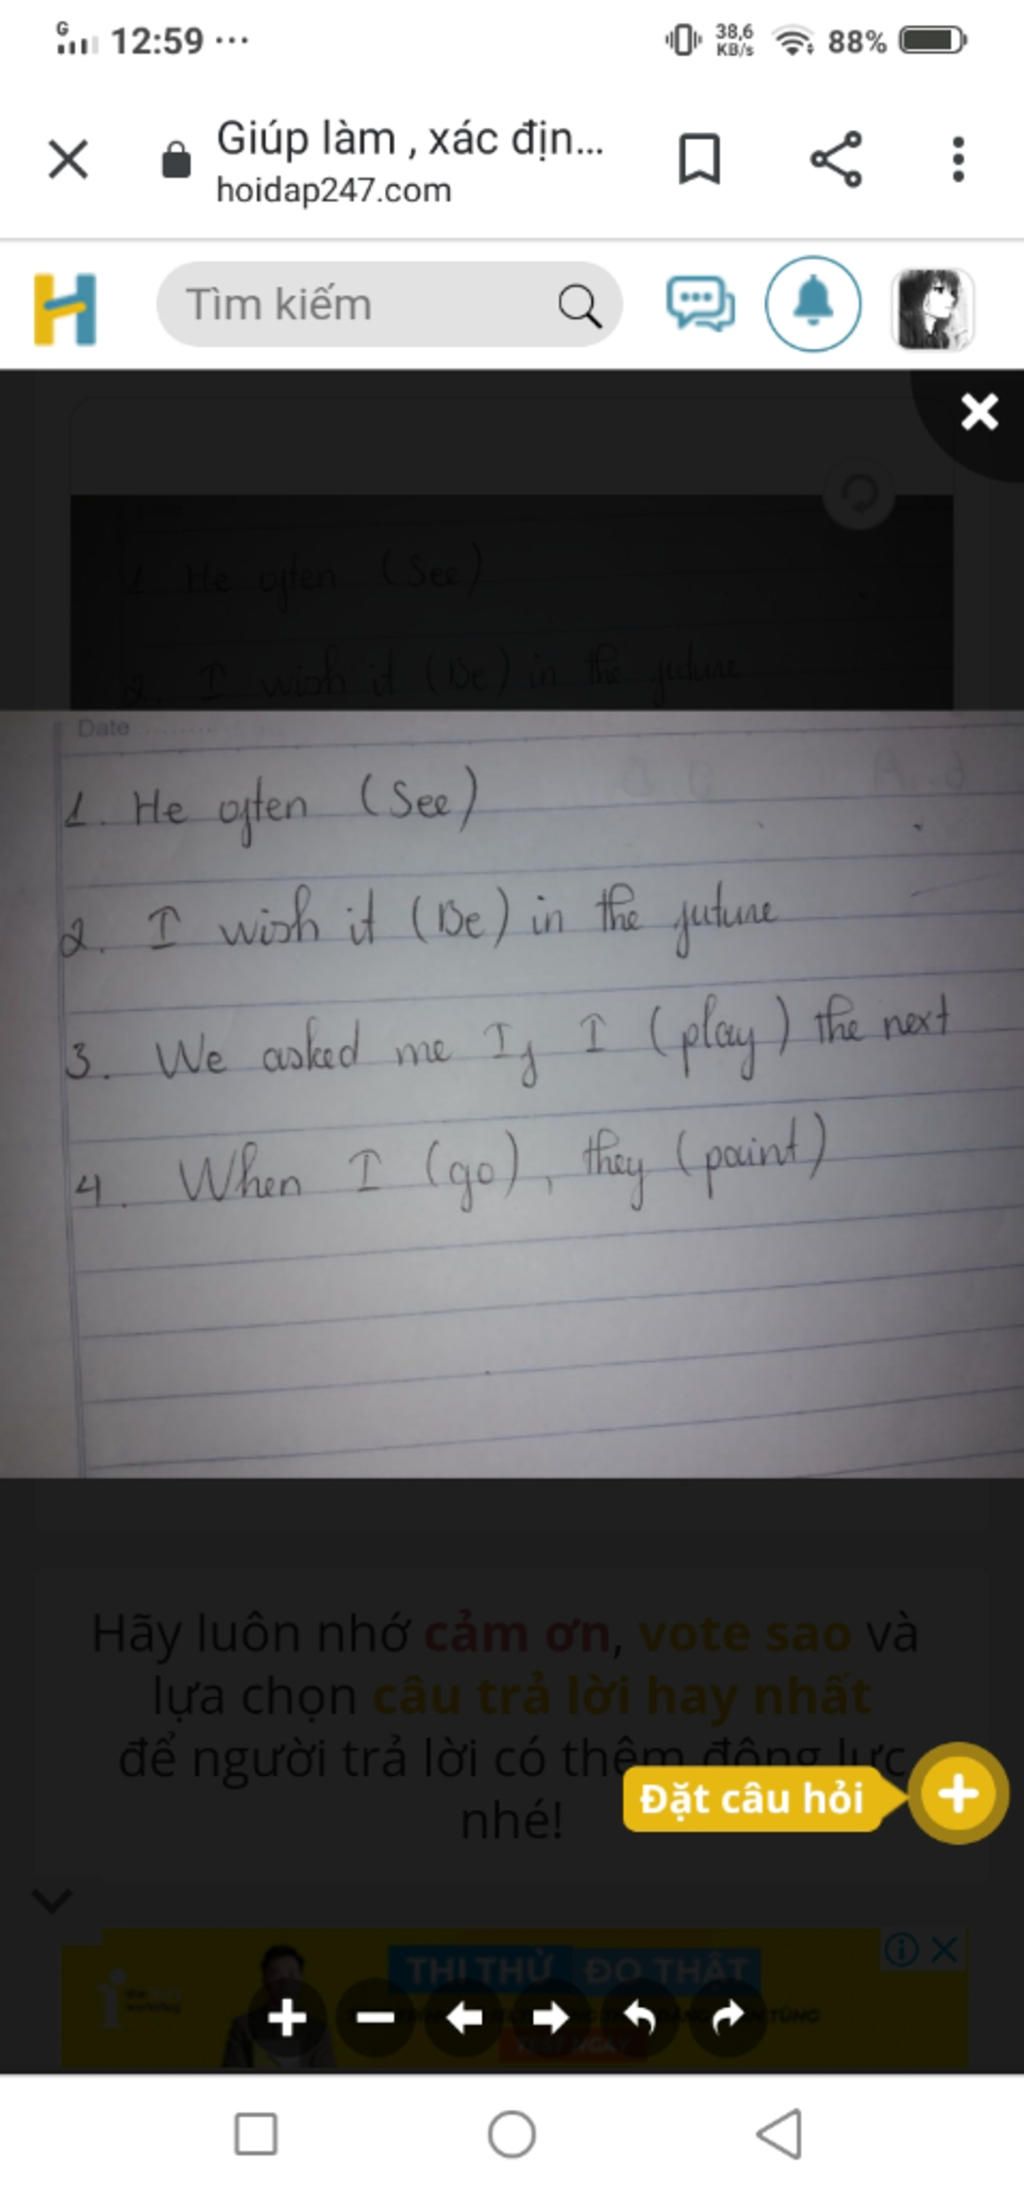 G
12:59 ...
38,6 KB/s
88%
Giúp làm , xác địn...
hoidap247.com
Tìm kiếm
1 He often (See)
2. I wish it (Be) in the future
Date
1. He often (See)
2. I wish it (Be) in the future
3. We asked me If I (play) the next
4. When I (go), they (paint)
Hãy luôn nhớ cảm ơn, vote sao và
lựa chọn câu trả lời hay nhất
để người trả lời có thêm động lực
nhé!
Đặt câu hỏi
THI THỬ ĐO THẬT
TEST NGAY